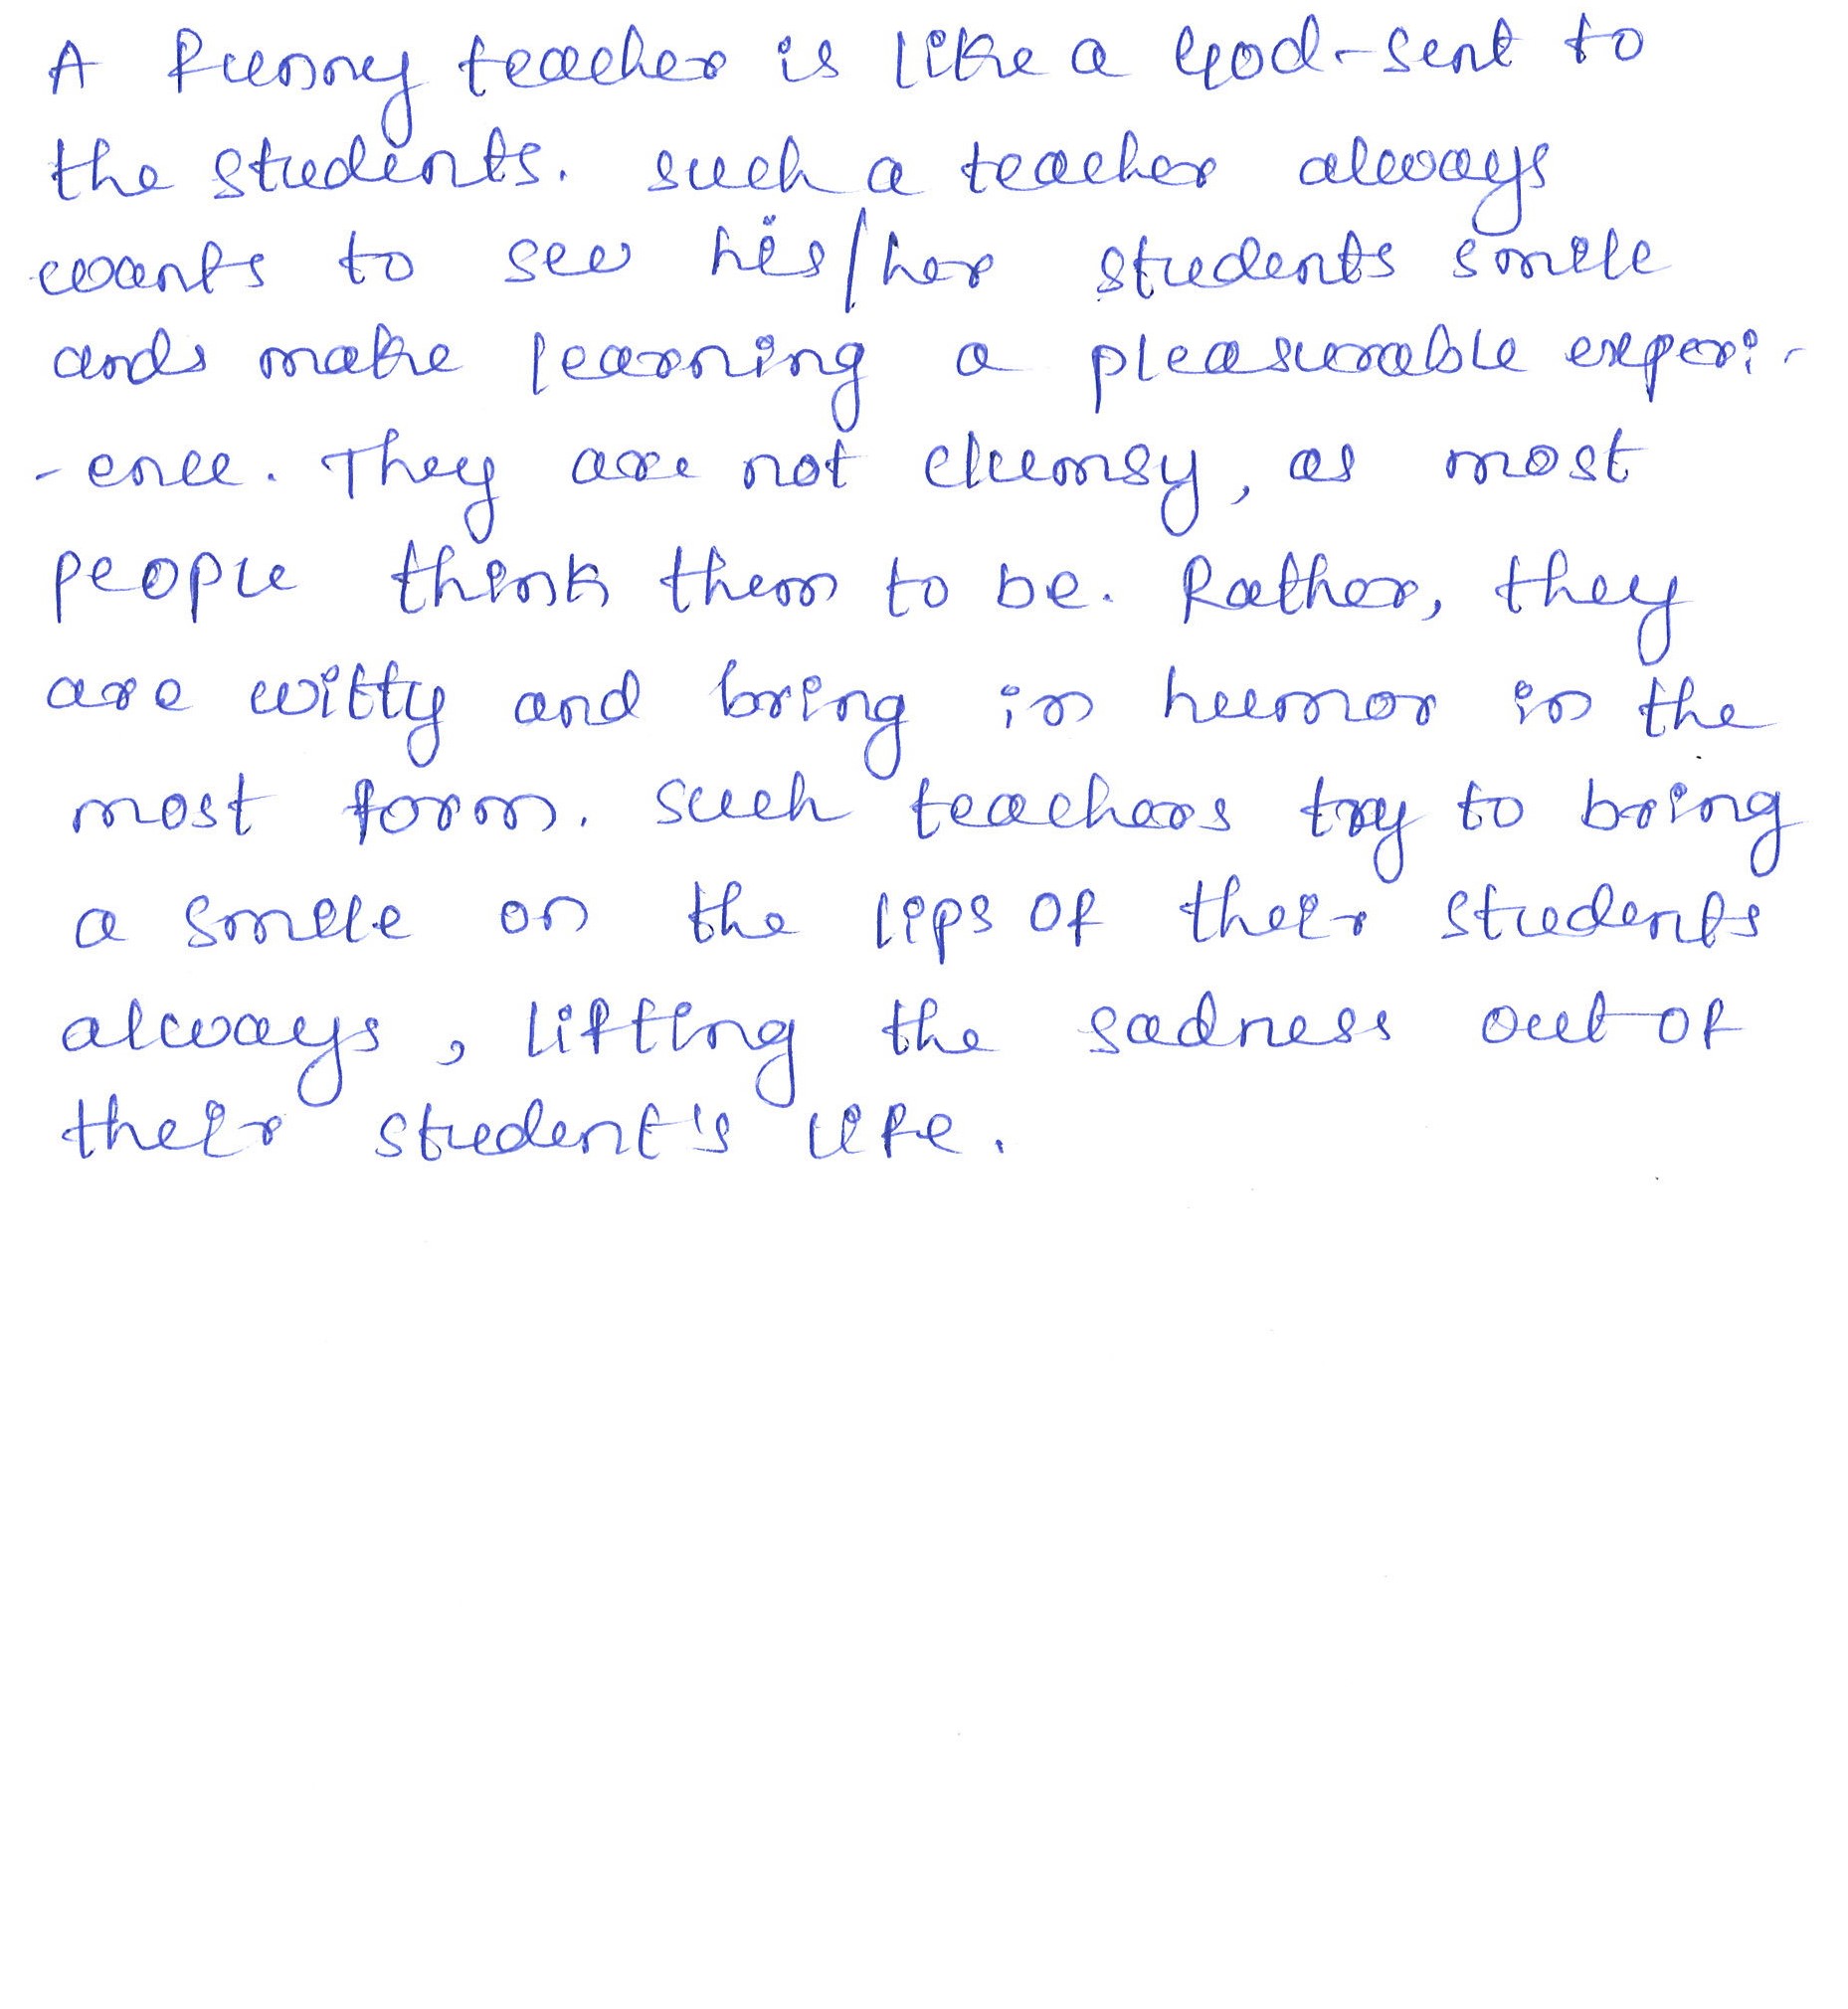 A funny teacher is like a God-sent to
the students. such a teacher always
wants to see his/her students smile
and make learning a pleasurable experi-
-ence. They are not clumsy, as most
people think them to be. Rather, they
are witty and bring in humor in the
most form. Such teachers try to bring
a smile on the lips of their students
always, lifting the sadness out of
their student's life.